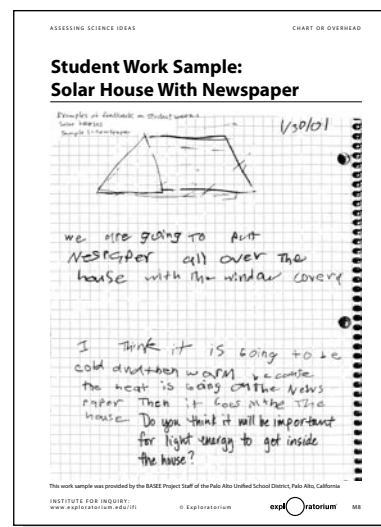 ASSESSING SCIENCE IDEAS
CHART OR OVERHEAD
Student Work Sample:
Solar House With Newspaper
Examples of feedback on student work
Solar Houses
Sample 1-Newspaper
1/30/01
we are going to put
Nespaper all over the
house with the window covery
I think it is going to be
cold and then warm because
the heat is going on the News
paper Then it Goes in the The
house. Do you think it will be important
for light energy to get inside
the house?
This work sample was provided by the BASEE Project Staff of the Palo Alto Unified School District, Palo Alto, California
INSTITUTE FOR INQUIRY:
www.exploratorium.edu/ifi
© Exploratorium
exploratorium
M8